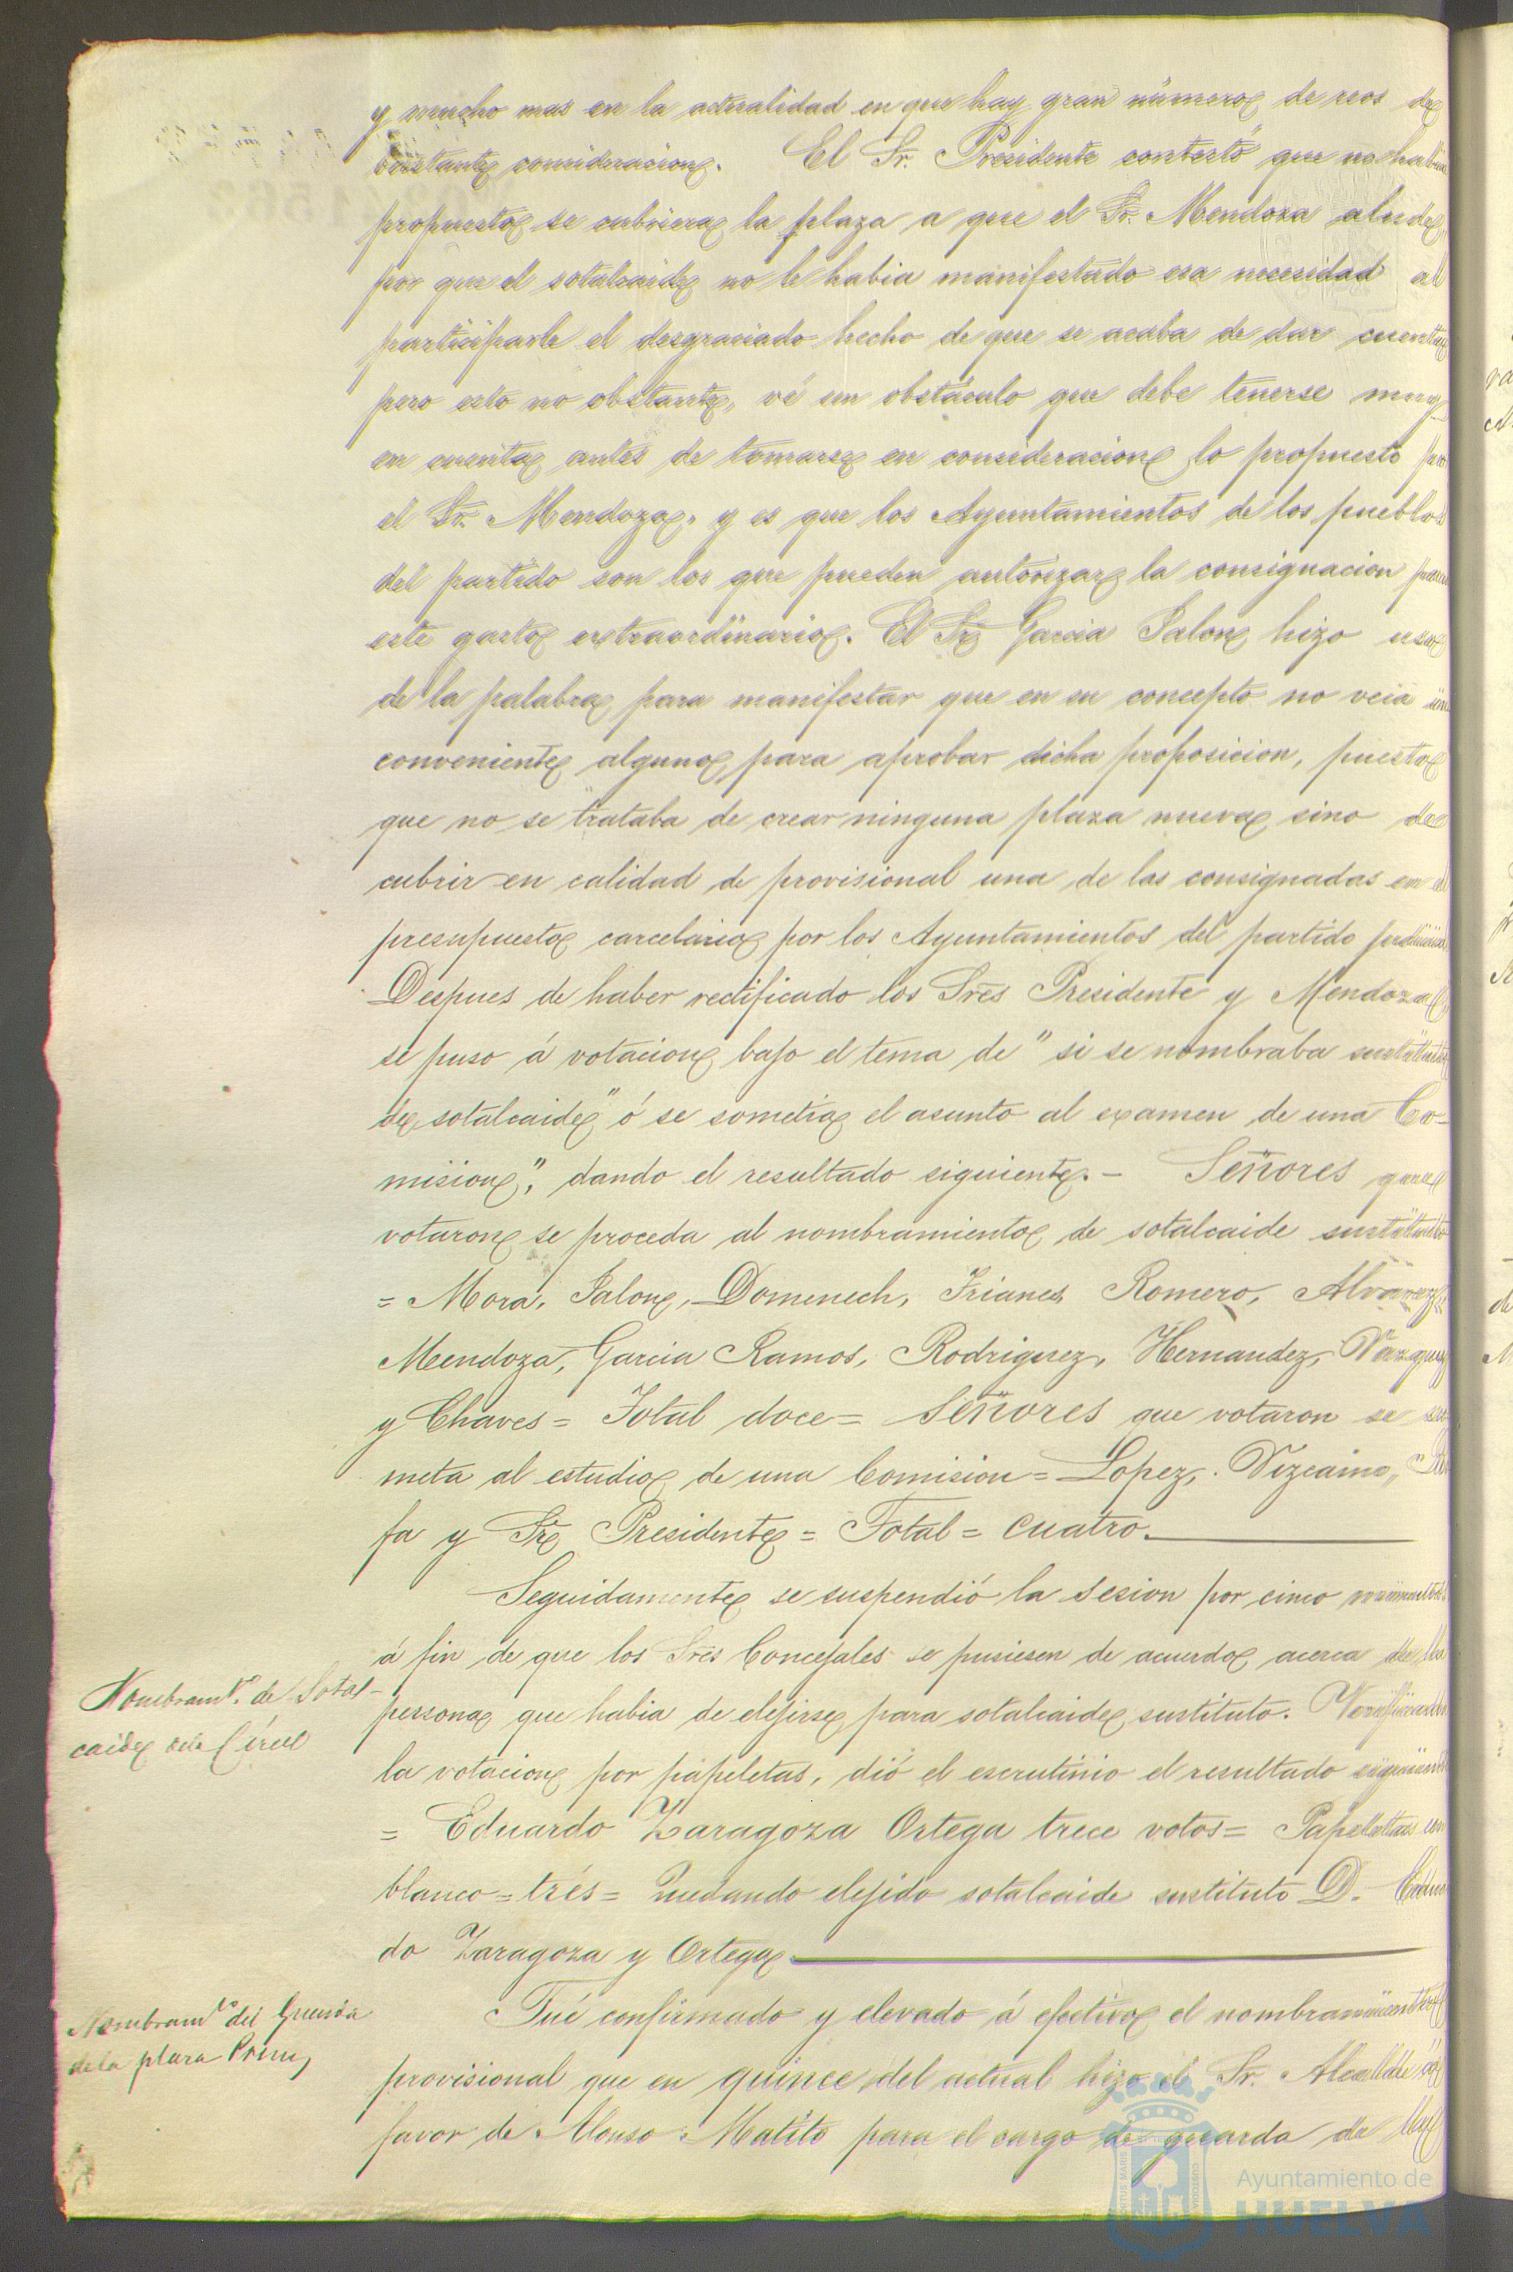 y mucho mas en la actualidad en que hay gran número de reos de
bastante consideracion. El Sr. Presidente contestó que no habia
propuesto se cubriera la plaza a que el Sr. Mendoza alude,
por que el sotalcaide no le habia manifestado esa necesidad al
participarle el desgraciado hecho de que se acaba de dar cuenta
pero esto no obstante, vé un obstáculo que debe tenerse muy
en cuenta antes de tomarse en consideracion lo propuesto por
el Sr. Mendoza, y es que los Ayuntamientos de los pueblos
del partido son los que pueden autorizar la consignacion para
este gasto extraordinario. El Sr Garcia Jalon hizo uso
de la palabra para manifestar que en su concepto no veia in
conveniente alguno para aprobar dicha proposicion, puesto
que no se trataba de crear ninguna plaza nueva sino de
cubrir en calidad de provisional una de las consignadas en el
presupuesto carcelario por los Ayuntamientos del partido judicial
Despues de haber rectificado los Sres Presidente y Mendoza
se puso á votacion bajo el tema de "si se nombraba sustituto
de sotalcaide" ó se sometia el asunto al examen de una Co-
mision", dando el resultado siguiente. - Señores que
votaron se proceda al nombramiento de sotalcaide sustituto
= Mora, Jalon, Domenech, Trianes Romero, Alvarez,
Mendoza, Garcia Ramos, Rodriguez, Hernandez, Vazquez
y Chaves = Total doce = Señores que votaron se so
meta al estudio de una Comision = Lopez, Vizcaino,
fa y Sr Presidente = Total = cuatro.
Seguidamente se suspendió la Sesion por cinco minutos
á fin de que los Sres Concejales se pusiesen de acuerdo acerca de la
persona que habia de elejirse para sotalcaide sustituto. Verificada
la votacion por papeletas, dió el escrutinio el resultado siguiente
= Eduardo Zaragoza Ortega trece votos = Papeletas en
blanco = trés = Quedando elejido sotalcaide sustituto D. Eduar
do Zaragoza y Ortega
Fué confirmado y elevado á efectivo el nombramiento
provisional que en quince del actual hizo el Sr. Alcalde á
favor de Alonso Matito para el cargo de guarda de la
Nombramto. de Sotal-
caide de la Cárcel
Nombramto del Guarda
de la plaza Prim,
Ayuntamiento de
HUELVA